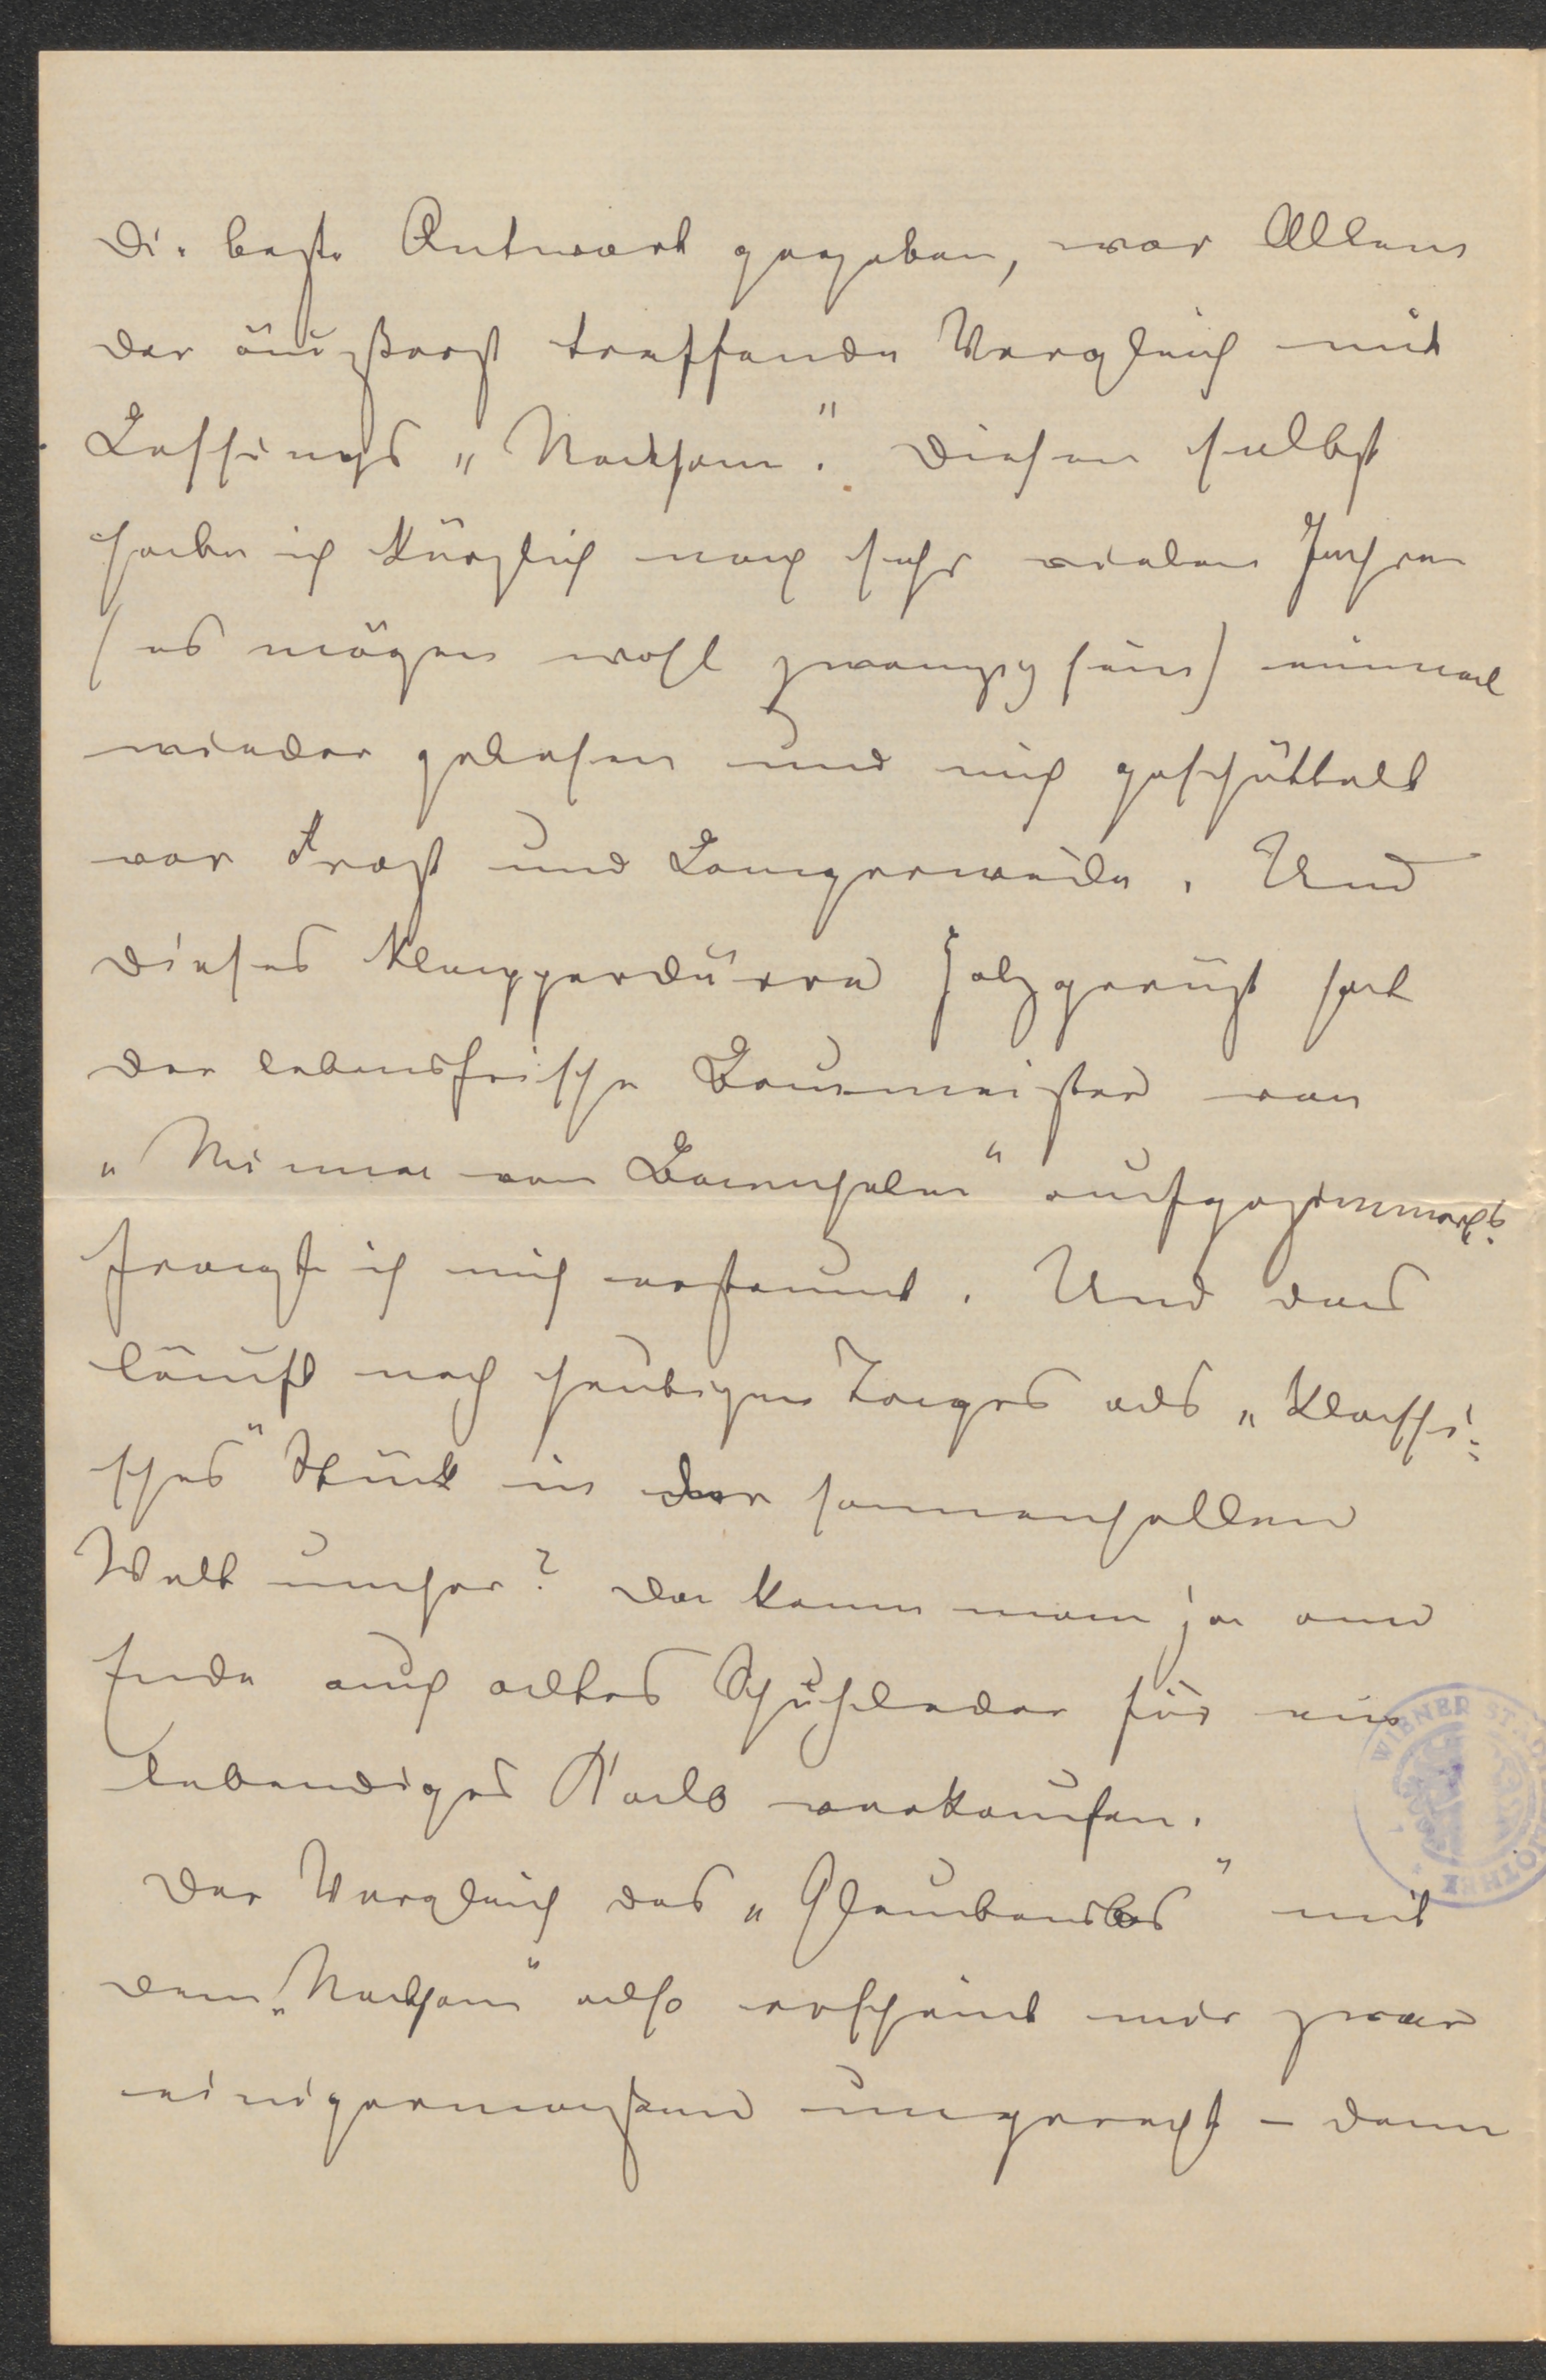 die beste Antwort gegeben, vor Allem
der äußerst treffende Vergleich mit
Lessings „Nathan“. Diesen selbst
habe ich kürzlich nach sehr vielen Jahren
(es mögen wohl zwanzig sein) einmal
wieder gelesen und mich geschüttelt
vor Frost und Langerweile. Und
dieses klapperdürre Holzgerüst hat
der lebensfrische Baumeister von
„Minna von Barnhelm“ aufgezimmert?
fragte ich mich erstaunt. Und das
läuft noch heutigen Tages als „klassi-
sches“ Stück in der sonnenhellen
Welt umher? Da kann man ja am
Ende auch altes Schuhleder für ein
lebendiges Kalb verkaufen.
Der Vergleich des „Glaubenslos“ mit
dem „Nathan“ also erscheint mir zwar
einigermaßen ungerecht – denn
WIENER